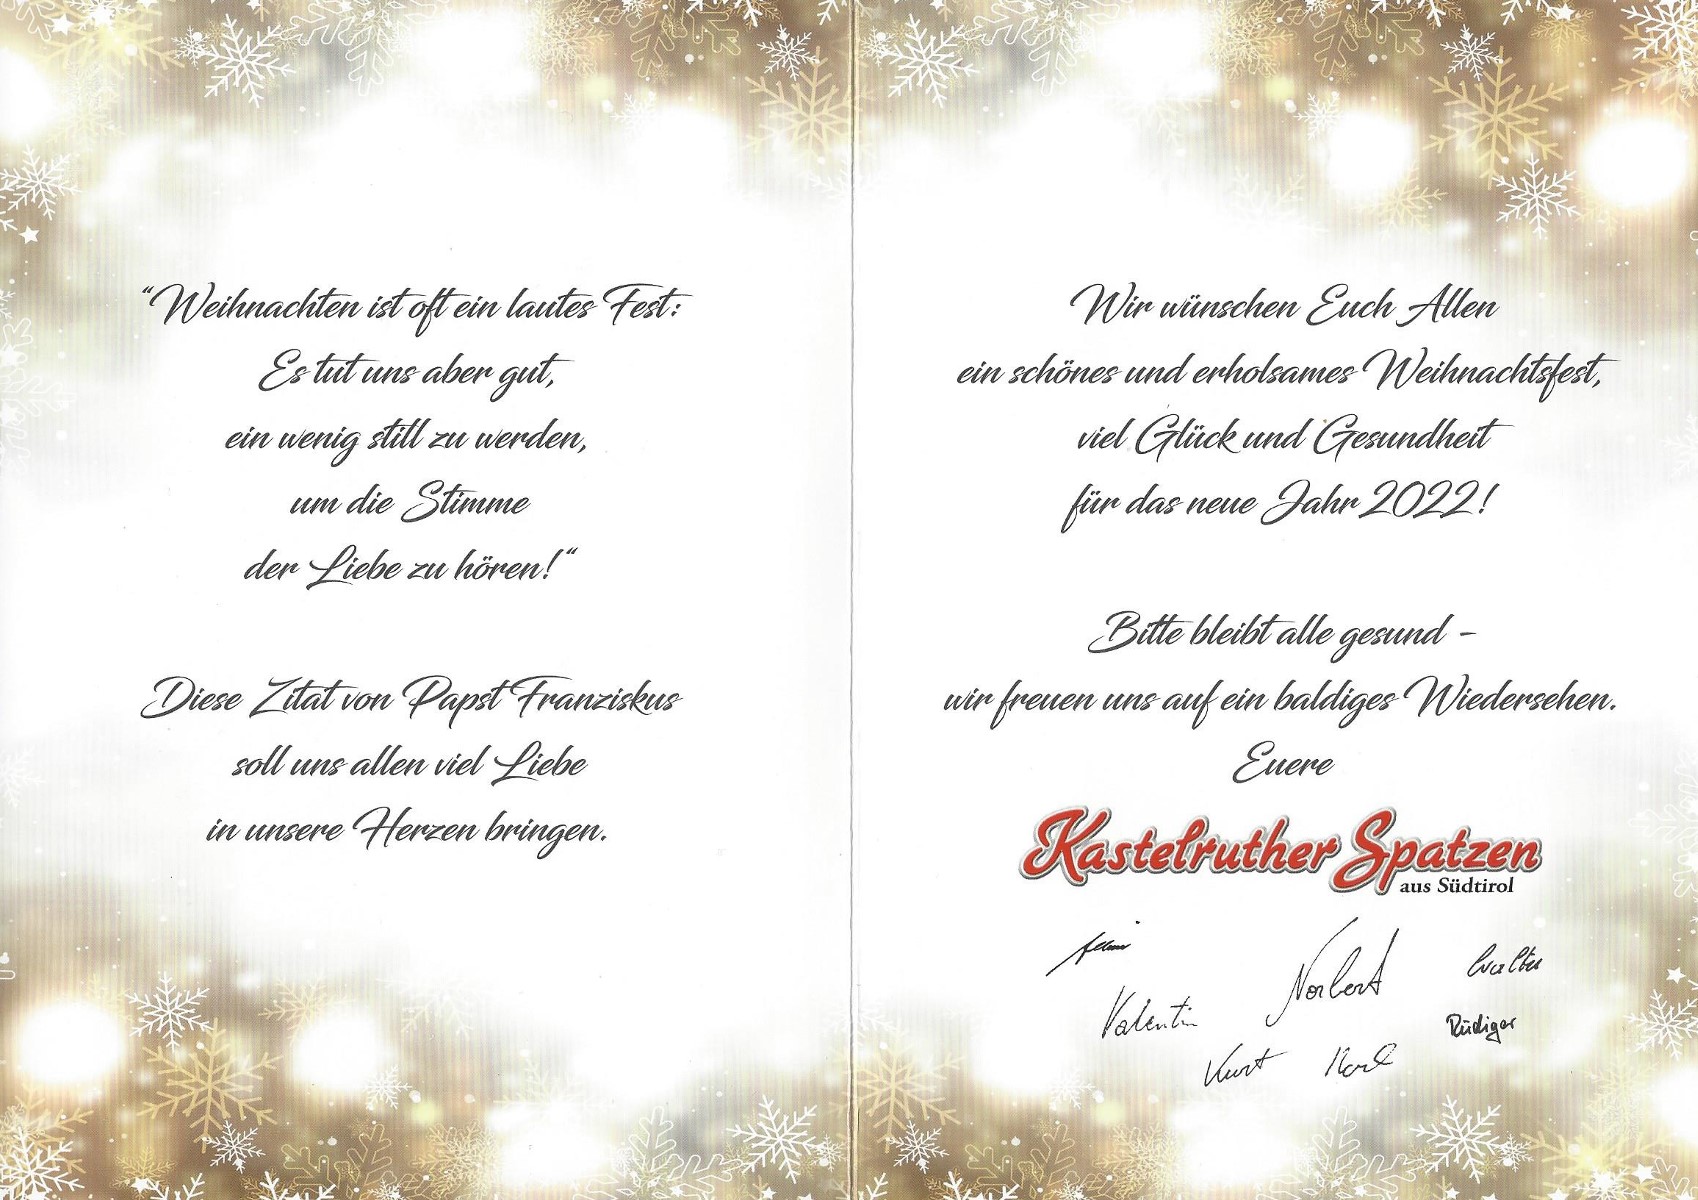 “Weihnachten ist oft ein lautes Fest:
Es tut uns aber gut,
ein wenig still zu werden,
um die Stimme
der Liebe zu hören!“
Diese Zitat von Papst Franziskus
soll uns allen viel Liebe
in unsere Herzen bringen.
Wir wünschen Euch Allen
ein schönes und erholsames Weihnachtsfest,
viel Glück und Gesundheit
für das neue Jahr 2022!
Bitte bleibt alle gesund -
wir freuen uns auf ein baldiges Wiedersehen.
Euere
Kastelruther Spatzen
aus Südtirol
Norbert
Walter
Valentin
Rüdiger
Kurt
Karl